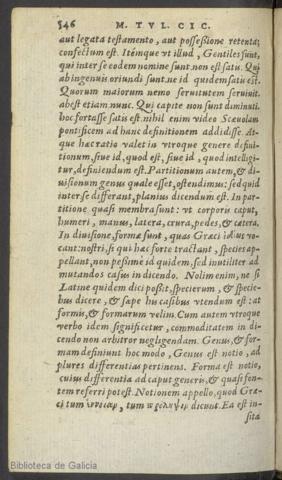 546 M. TVL. CIC.
aut legata testamento, aut possessione retenta;
confectum est. Itémque vt illud, Gentiles sunt,
qui inter se eodem nomine sunt. non est satis. Qui
ab ingenuis oriundi sunt. ne id quidem satis est.
Quorum maiorum nemo seruitutem seruiuit.
abest etiam nunc. Qui capite non sunt diminuti.
hoc fortasse satis est. nihil enim video Scæuolam
pontificem ad hanc definitionem addidisse. At-
que hac ratio valet in vtroque genere defini-
tionum, siue id, quod est, siue id, quod intelligi-
tur, definiendum est. Partitionum autem, & di-
uisionum genus quale esset, ostendimus: sed quid
inter se differant, planius dicendum est. In par-
titione quasi membra sunt: vt corporis caput,
humeri, manus, latera, crura, pedes, & cætera.
In diuisione, formæ sunt, quas Græci vo-
cant: nostri, si qui hæc forte tractant, species ap-
pellant, non pessimè id quidem, sed inutiliter ad
mutandos casus in dicendo. Nolim enim, ne si
Latine quidem dici possit, specierum, & specie-
bus dicere, & sæpe his casibus vtendum est: at
formis, & formarum velim. Cum autem vtroque
verbo idem significetur, commoditatem in di-
cendo non arbitror negligendam. Genus, & for-
mam definiunt hoc modo, Genus est notio, ad
plures differentias pertinens. Forma est notio,
cuius differentia ad caput generis, & quasi fon-
tem referri potest. Notionem appello, quod Græ-
ci tum ἔννοιαν, tum πρόληψιν dicunt. Ea est in-
sita
Biblioteca de Galicia